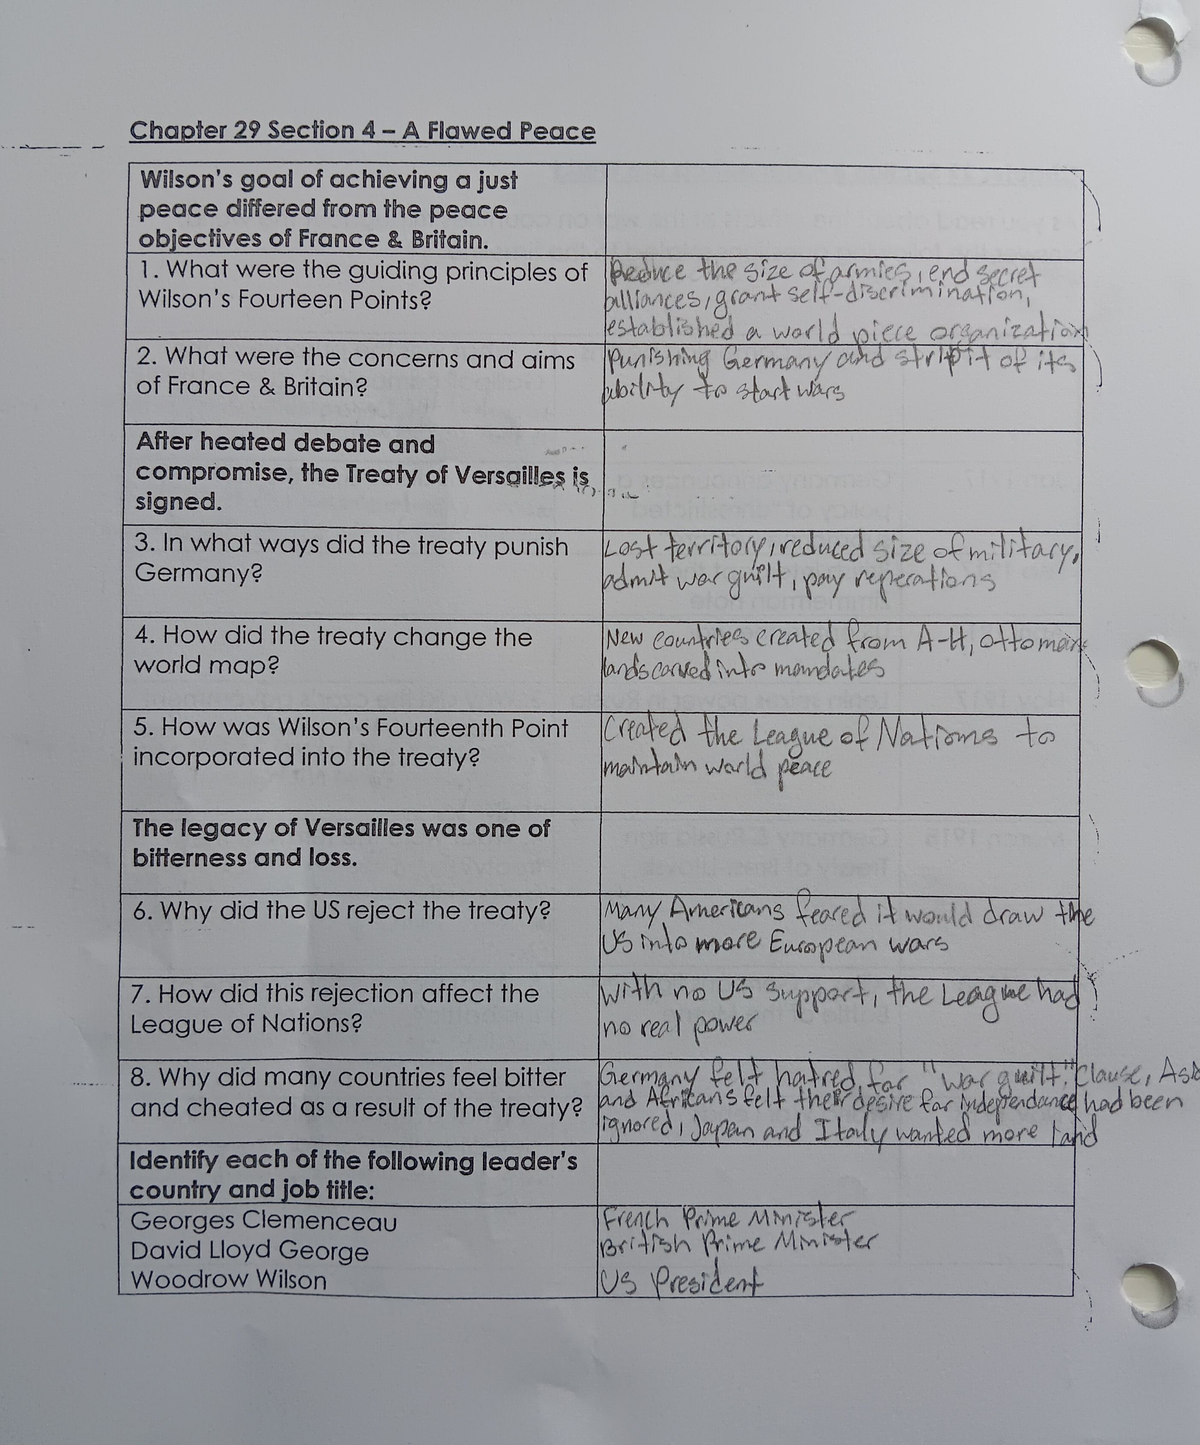 Chapter 29 Section 4 – A Flawed Peace
Wilson's goal of achieving a just
peace differed from the peace
objectives of France & Britain.
1. What were the guiding principles of
Wilson's Fourteen Points?
Reduce the size of armies, end secret
alliances, grant self-discrimination,
established a world piece organization
2. What were the concerns and aims
of France & Britain?
Punishing Germany and strip it of its
ability to start wars
After heated debate and
compromise, the Treaty of Versailles is
signed.
3. In what ways did the treaty punish
Germany?
Lost territory, reduced size of military,
admit war guilt, pay reperations
4. How did the treaty change the
world map?
New countries created from A-H, ottoman
lands carved into mandates
5. How was Wilson's Fourteenth Point
incorporated into the treaty?
Created the League of Nations to
maintain world peace
The legacy of Versailles was one of
bitterness and loss.
6. Why did the US reject the treaty?
Many Americans feared it would draw the
US into more European wars
7. How did this rejection affect the
League of Nations?
With no US support, the League had
no real power
8. Why did many countries feel bitter
and cheated as a result of the treaty?
Germany felt hatred for "war guilt" clause,
and Africans felt their desire for independance had been
ignored, Japan and Italy wanted more land
Identify each of the following leader's
country and job title:
Georges Clemenceau
David Lloyd George
Woodrow Wilson
French Prime Minister
British Prime Minister
US President